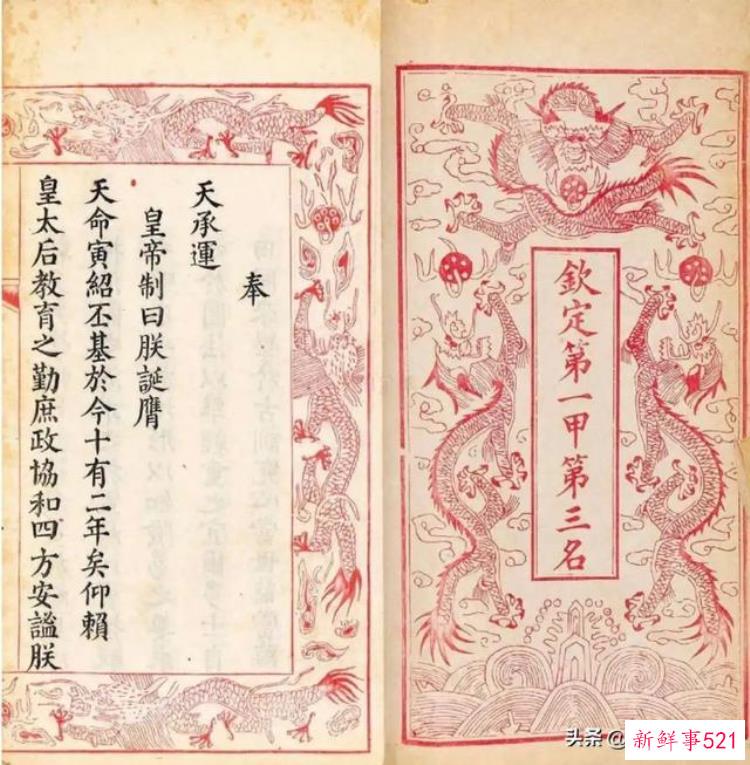 欽定第一甲第三名
奉
天承運
皇帝制曰朕誕膺
天命寅紹丕基於今十有二年矣仰賴
皇太后教育之勤庶政協和四方安謐朕
头条 @
新鲜事521